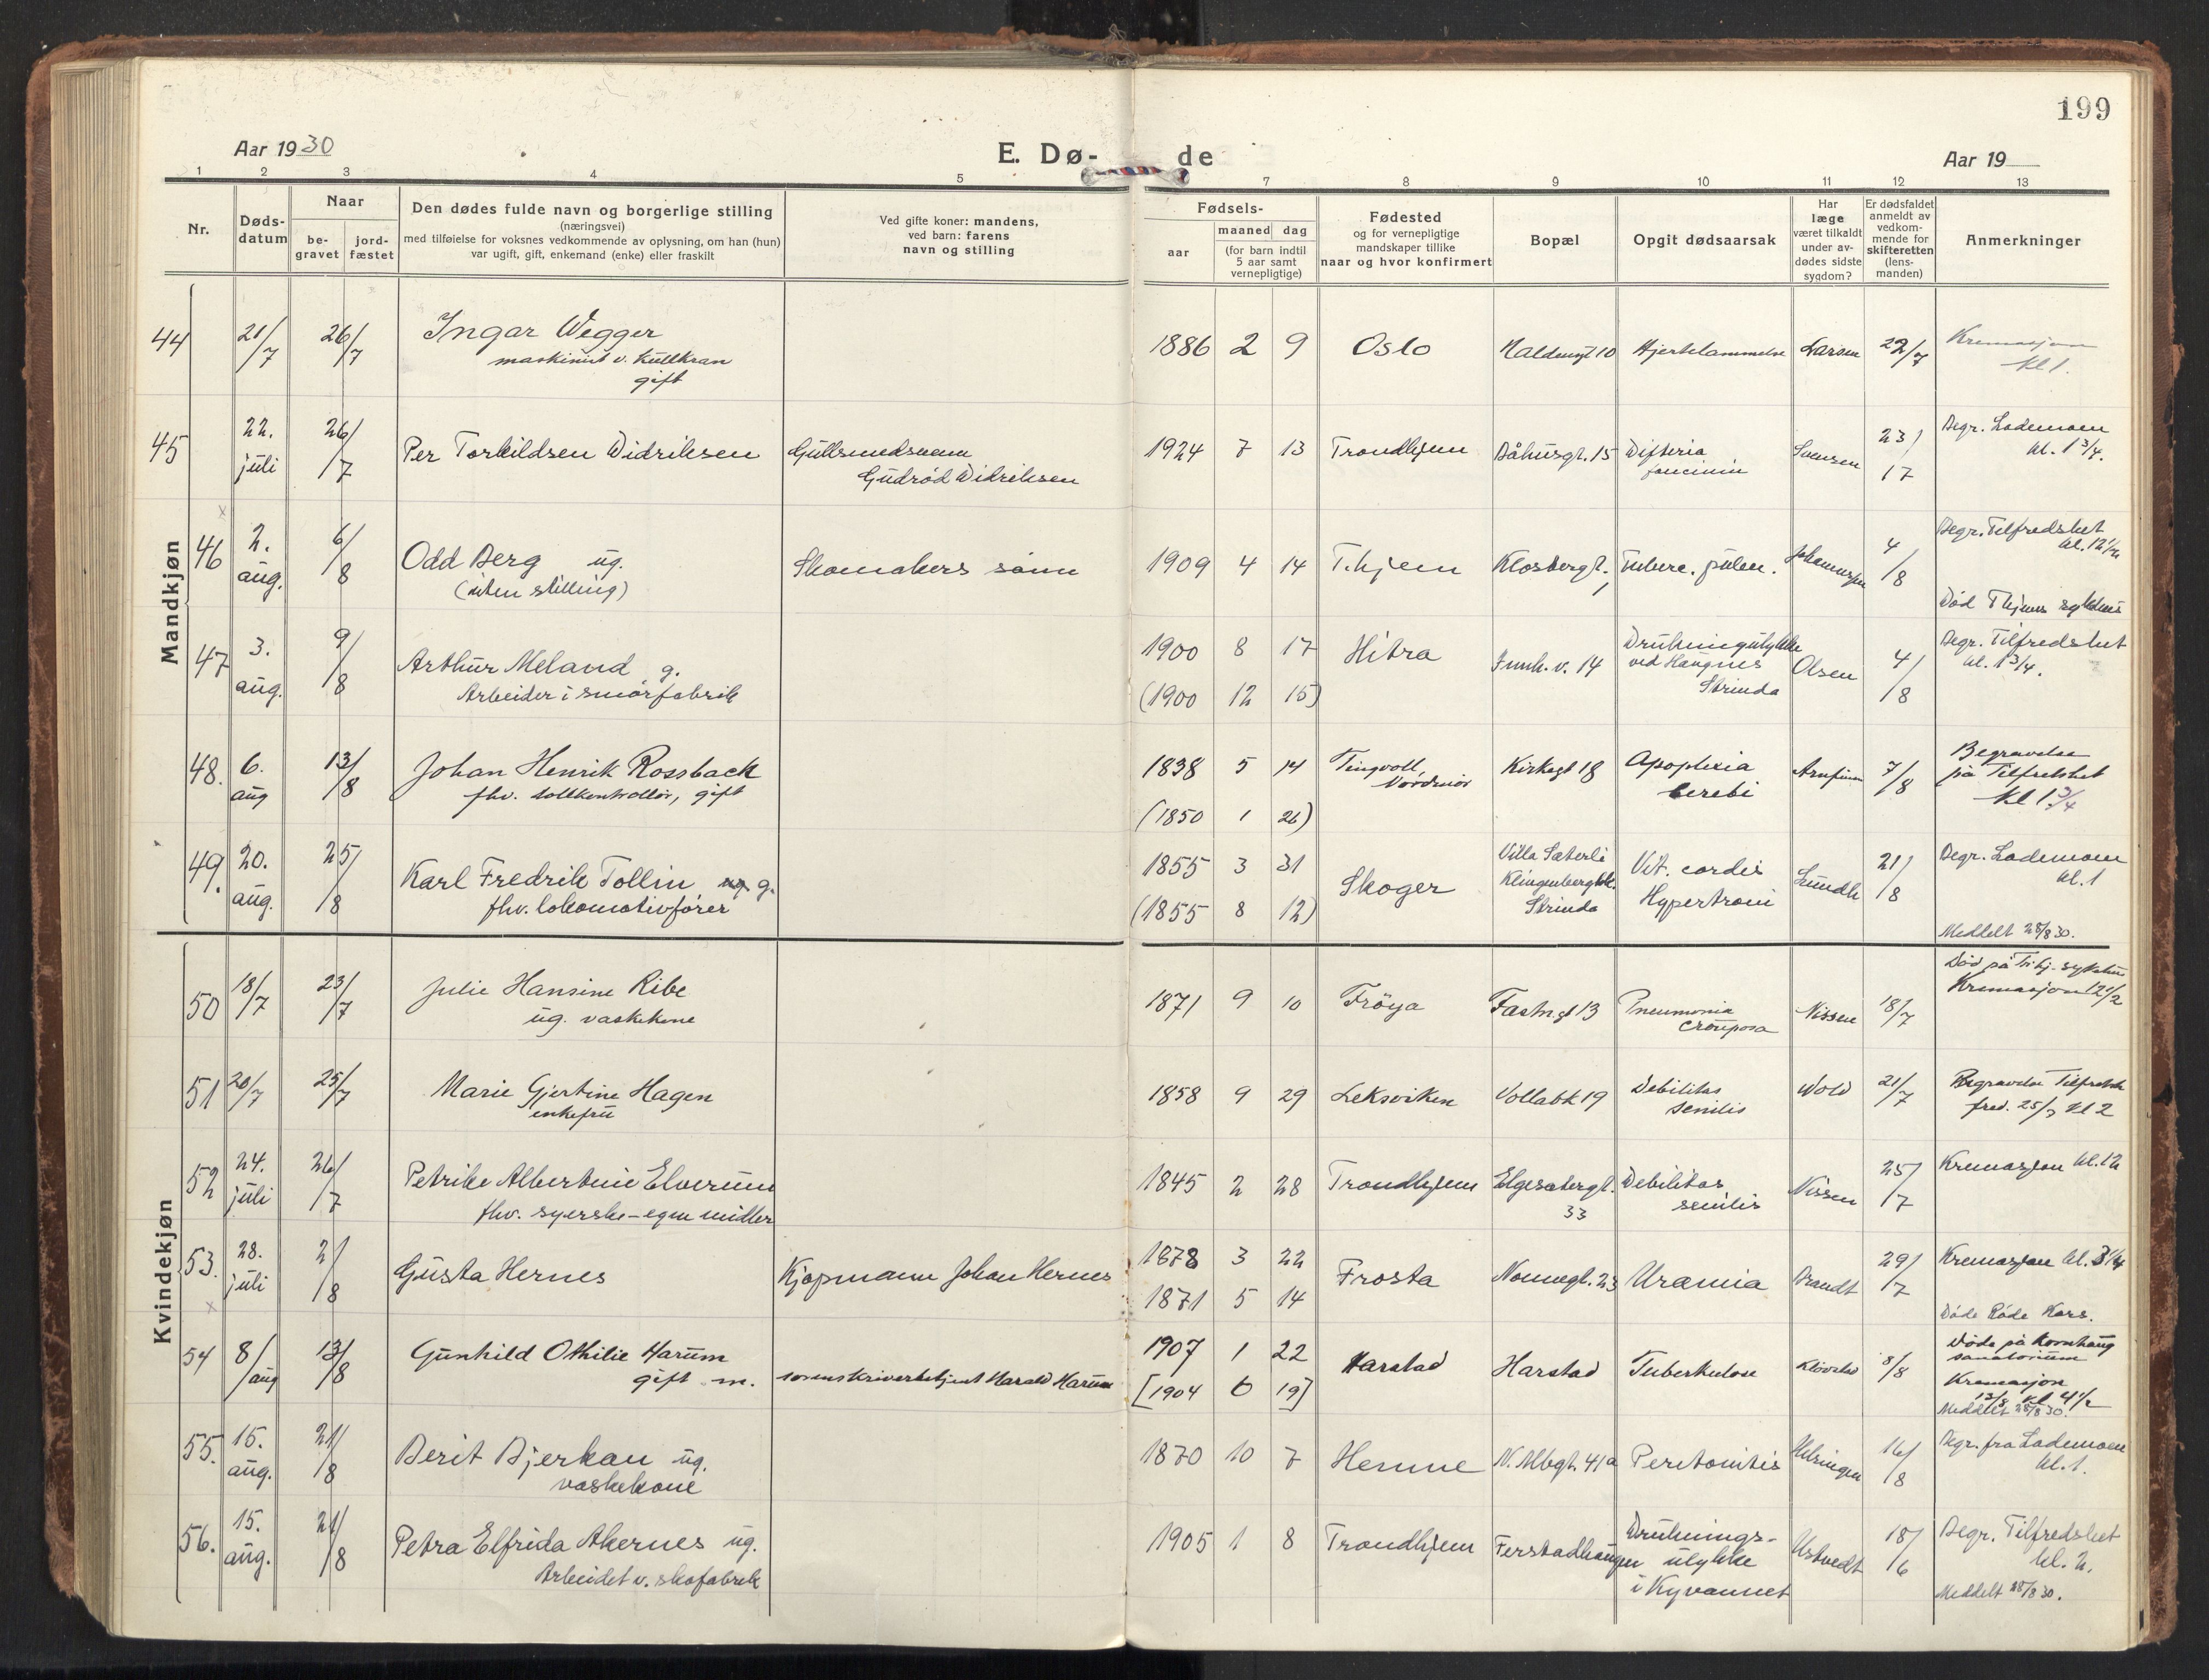 199
Aar 1930
E. Dø-
de
Aar 19
1 2 3 4 5 7 8 9 10 11 12 13
Nr.
Døds-
datum
Naar
be-
gravet
jord-
fæstet
Den dødes fulde navn og borgerlige stilling
(næringsvei)
med tilføielse for voksnes vedkommende av oplysning, om han (hun)
var ugift, gift, enkemand (enke) eller fraskilt
Ved gifte koner: mandens,
ved barn: farens
navn og stilling
Fødsels-
aar
maaned dag
(for barn indtil
5 aar samt
vernepligtige)
Fødested
og for vernepligtige
mandskaper tillike
naar og hvor konfirmert
Bopæl
Opgit dødsaarsak
Har
læge
været tilkaldt
under av-
dødes sidste
sygdom?
Er dødsfaldet
anmeldt av
vedkom-
mende for
skifteretten
(lens-
manden)
Anmerkninger
Mandkjøn
44 21/7 26/7 Ingar Wegger
maskinist v. kullkran
gift
1886 2 9 Oslo Hjertelammelse Larsen 22/7 Kremasjon
kl 1.
45 22. juli 26/7 Per Torkildsen Widriksen
Gullsmedsvenn
Gudrød Widriksen
1924 7 13 Trondhjem Båhusgt. 15 Difteria
faucium
Svensen 23/7 Begr. Lademoen
kl. 1 3/4.
46 2. aug. 6/8 Odd Berg ug.
(uten stilling)
Skomakers sønn
1909 4 14 T.hjem Klosbergt. 1 Tuberc. pulm. Johannessen 4/8 Begr. Tilfredshet
kl. 12 1/2
Død T.hjems sykehus
47 3. aug. 9/8 Arthur Meland g.
Arbeider i smörfabrik
1900 8 17 Hitra Innh. v. 14 Drukningulykke
ved Haugnes
Strinda
Olsen 4/8 Begr. Tilfredshet
kl. 1 3/4.
(1900 12 15)
48. 6. aug 13/8 Johan Henrik Rossback
fhv. tollkontrollør, gift
1838 5 14 Tingvoll,
Nordmör
Kirkegt 18 Apoplexia
cerebi
7/8 Begravelse
på Tilfredshet
kl 1 3/4
(1850 1 26)
49. 20. aug. 25/8 Karl Fredrik Tollin ug. g.
fhv. lokomotivfører
1855 3 31 Skoger Villa Sæterli
Strinda
Vit. cordis
21/8 Begr. Lademoen
kl. 1
(1855 8 12)
Meddelt 28/8 30.
Kvindekjøn
50 18/7 23/7 Julie Hansine Ribe
ug. vaskekone
1871 9 10 Fröya 13 Pneumonia
crouposa
Nissen 18/7 Död på Tr.hj. sykehus
Kremasjon 12 1/2
51 20/7 25/7 Marie Gjertine Hagen
enkefru
1858 9 29 Leksviken Vollabk 19 Debilitas
senilis
Wold 21/7 Begravelse Tilfredsh
fred. 25/7 kl 2
52 24. juli 26/7 Petrike Albertine Elverum
fhv. syerske - egne midler
1845 2 28 Trondhjem Elgesætergt.
33
Debilitas
senilis
Nissen 25/7 Kremasjon kl. 12
53. 28. juli 2/8 Gusta Hernes
Kjøpmann Johan Hernes
1878 3 22 Frosta Nonnegt. 23 Uramia Brandt 29/7 Kremasjon kl. 3 1/4
1871 5 14
Döde Röde Kors.
54 8/aug 13/8 Gunhild Othilie Harum
gift m.
sorenskriverbetjent Harald Harum
1907 1 22 Harstad Harstad Tuberkulose 8/8 Döde på Kornhaug
sanatorium
Kremasjon
13/8 kl 4 1/2
[1904 6 19]
Meddelt 28/8 30.
55. 15. aug. 21/8 Berit Bjerkan ug.
vaskekone
1870 10 7 Hemne N. Albgt. 41a Peritonitis 16/8 Begr. fra Lademoen
kl. 1.
56. 15. aug. 21/8 Petra Elfrida Akernes ug.
Arbeidet v. skofabrik
1905 1 8 Trondhjem Ferstadhaugen Druknings-
ulykke
i Kyvannet
Ustvedt 18/6 Begr. Tilfredshet
kl. 2.
Meddelt 28/8 30.